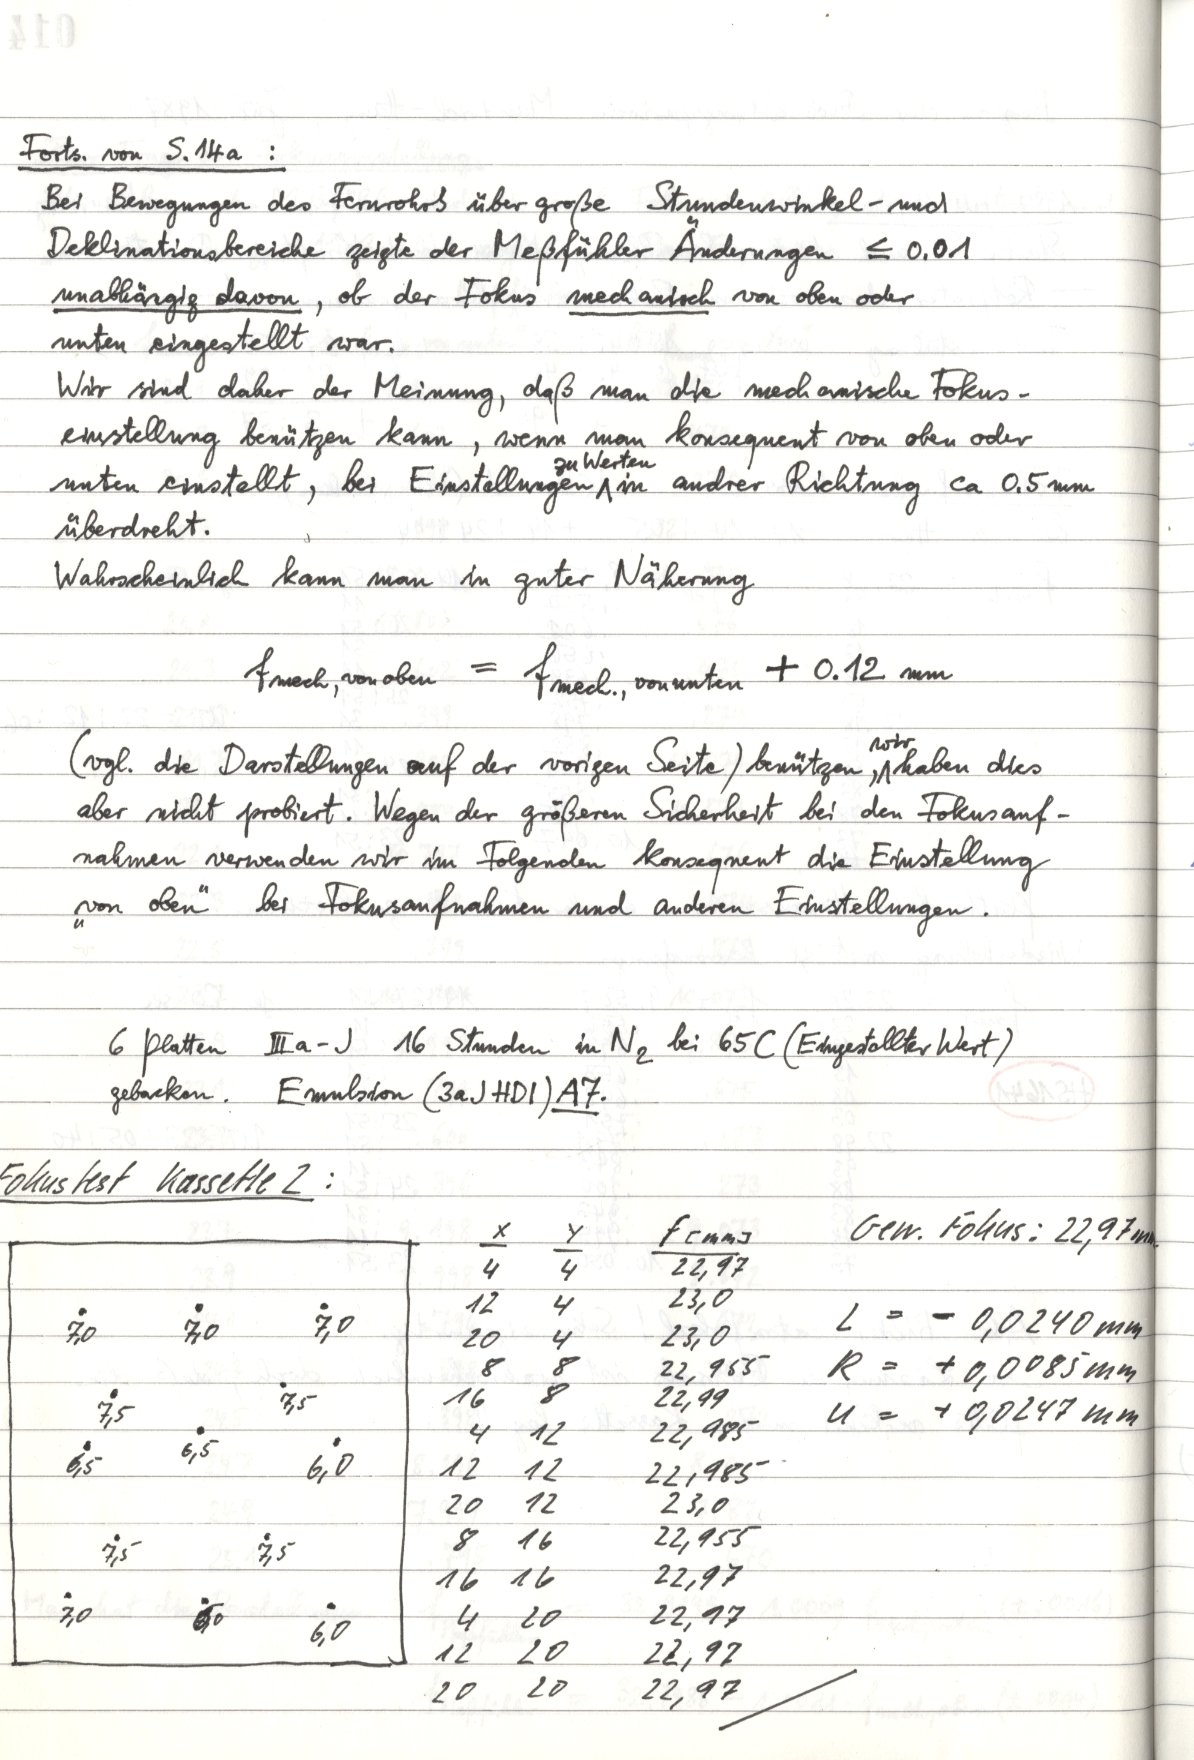 Forts. von S.14a :
Bei Bewegungen des Fernrohrs über große Stundenwinkel- und
Deklinationsbereiche zeigte der Meßfühler Änderungen ≤ 0.01
unabhängig davon, ob der Fokus mechanisch von oben oder
unten eingestellt war.
Wir sind daher der Meinung, daß man die mechanische Fokus-
einstellung benützen kann, wenn man konsequent von oben oder
unten einstellt, bei Einstellungen zu Werten in andrer Richtung ca 0.5 mm
überdreht.
Wahrscheinlich kann man in guter Näherung
f mech, von oben = f mech., von unten + 0.12 mm
(vgl. die Darstellungen auf der vorigen Seite) benützen, wir haben dies
aber nicht probiert. Wegen der größeren Sicherheit bei den Fokusauf-
nahmen verwenden wir im Folgenden konsequent die Einstellung
„von oben“ bei Fokusaufnahmen und anderen Einstellungen.
6 Platten IIIa-J 16 Stunden in N2 bei 65C (Eingestellter Wert)
gebacken. Emulsion (3aJHDI) A7.
Fokustest Kassette 2 :
x y f [mm] Gew. Fokus: 22,97mm
4 4 22,97
12 4 23,0
20 4 23,0
8 8 22,955
16 8 22,99
4 12 22,985
12 12 22,985
20 12 23,0
8 16 22,955
16 16 22,97
4 20 22,97
12 20 22,97
20 20 22,97
L = - 0,0240 mm
R = + 0,0085 mm
U = + 0,0247 mm
7,0 7,0 7,0
7,5 7,5
6,5 6,5 6,0
7,5 7,5
7,0 6,0